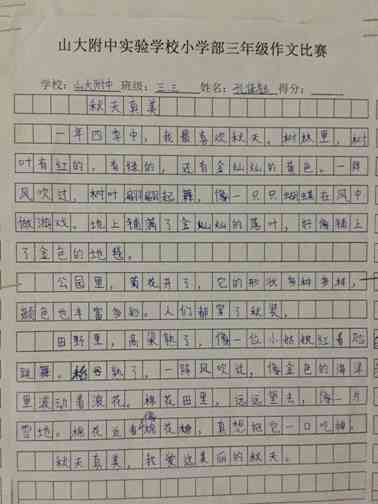 山大附中实验学校小学部三年级作文比赛
学校:山大附中 班级:三三 姓名: 得分:
秋天真美
一年四季中,我最喜欢秋天。树林里,树
叶有红的,有绿的,还有金灿灿的黄色。一阵
风吹过,树叶翩翩起舞,像一只只蝴蝶在风中
做游戏。地上铺满了金灿灿的落叶,好像铺上
了金色的地毯。
公园里,菊花开了,它的形状多种多样,
颜色也丰富多彩。人们都写了秋菊。
田野里,高粱熟了,像一位小姑娘红着脸
跳舞。稻谷熟了,一阵风吹过,像金色的海洋
里波动着浪花。棉花田里,远远望去,像一片
雪地。棉花近看像棉花糖,真想把它一口吃掉。
秋天真美,我爱这美丽的秋天。